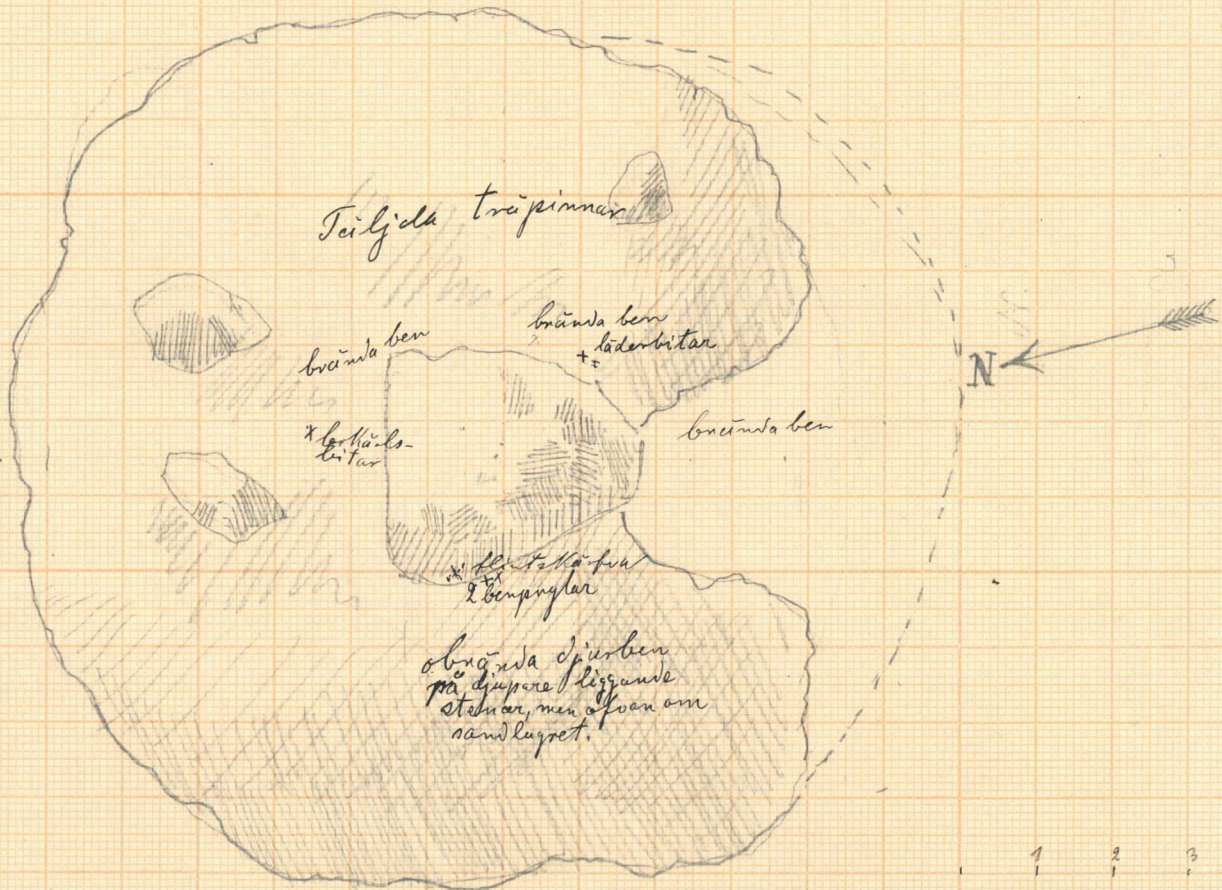 Täljda träpinnar
brända ben
brända ben
läderbitar
brända ben
lerkärls-
bitar
N
flintskärva
2 benprylar
obrända djurben
på djupare liggande
stenar, men ofvan om
sandlagret.
1 2 3